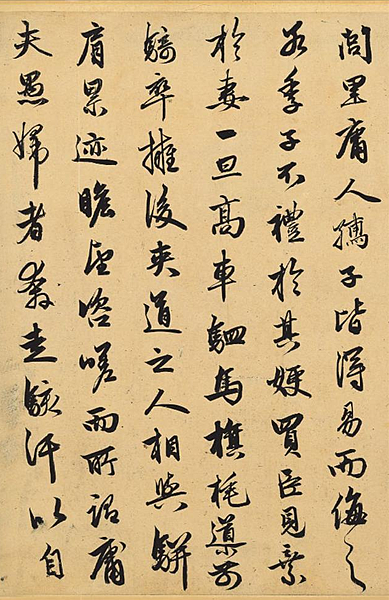 閭里庸人孺子皆得易而侮之
若季子不禮於其嫂買臣見棄
於妻一旦高車駟馬旗旄導前
騎卒擁後夾道之人相與駢
肩累迹瞻望咨嗟而所謂庸
夫愚婦者奔走駭汗以自